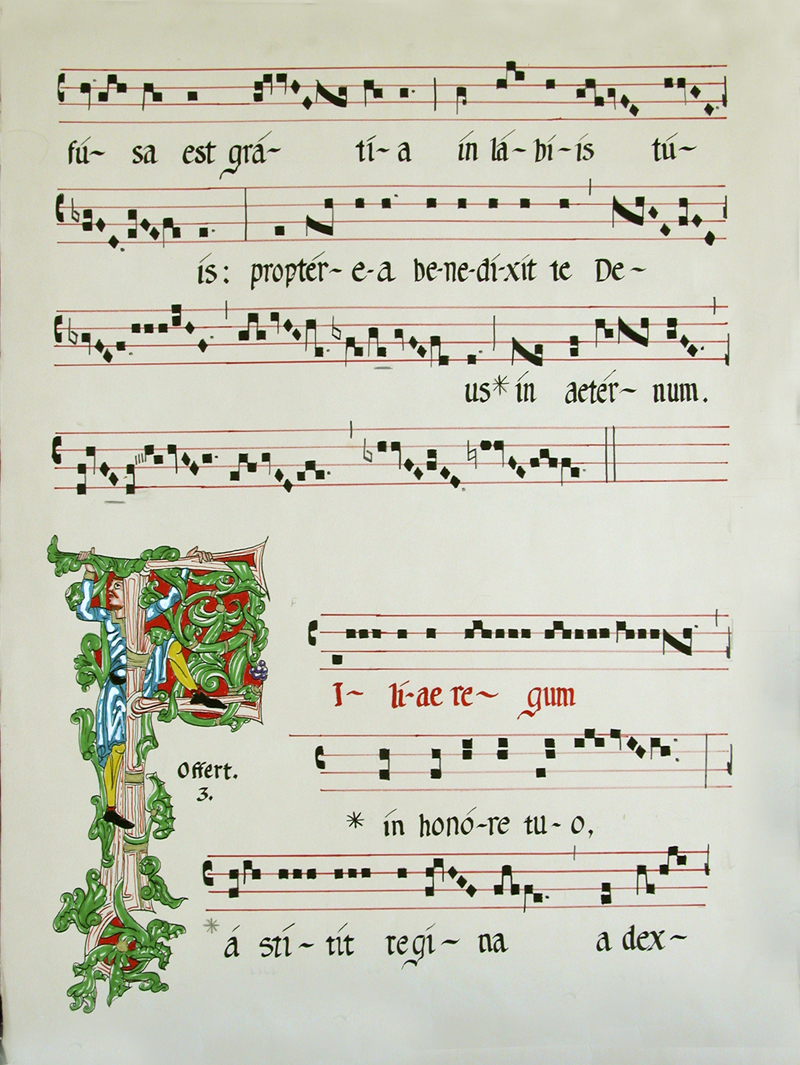 fú- sa est grá- tí- a ín lá- bí- ís tú-
ís: proptér- e-a be-ne-dí-xít te De-
us* ín aetér- num.
F
I- lí-ae re- gum
Offert.
3.
* ín honó-re tu- o,
* á stí- tít regí- na a dex-